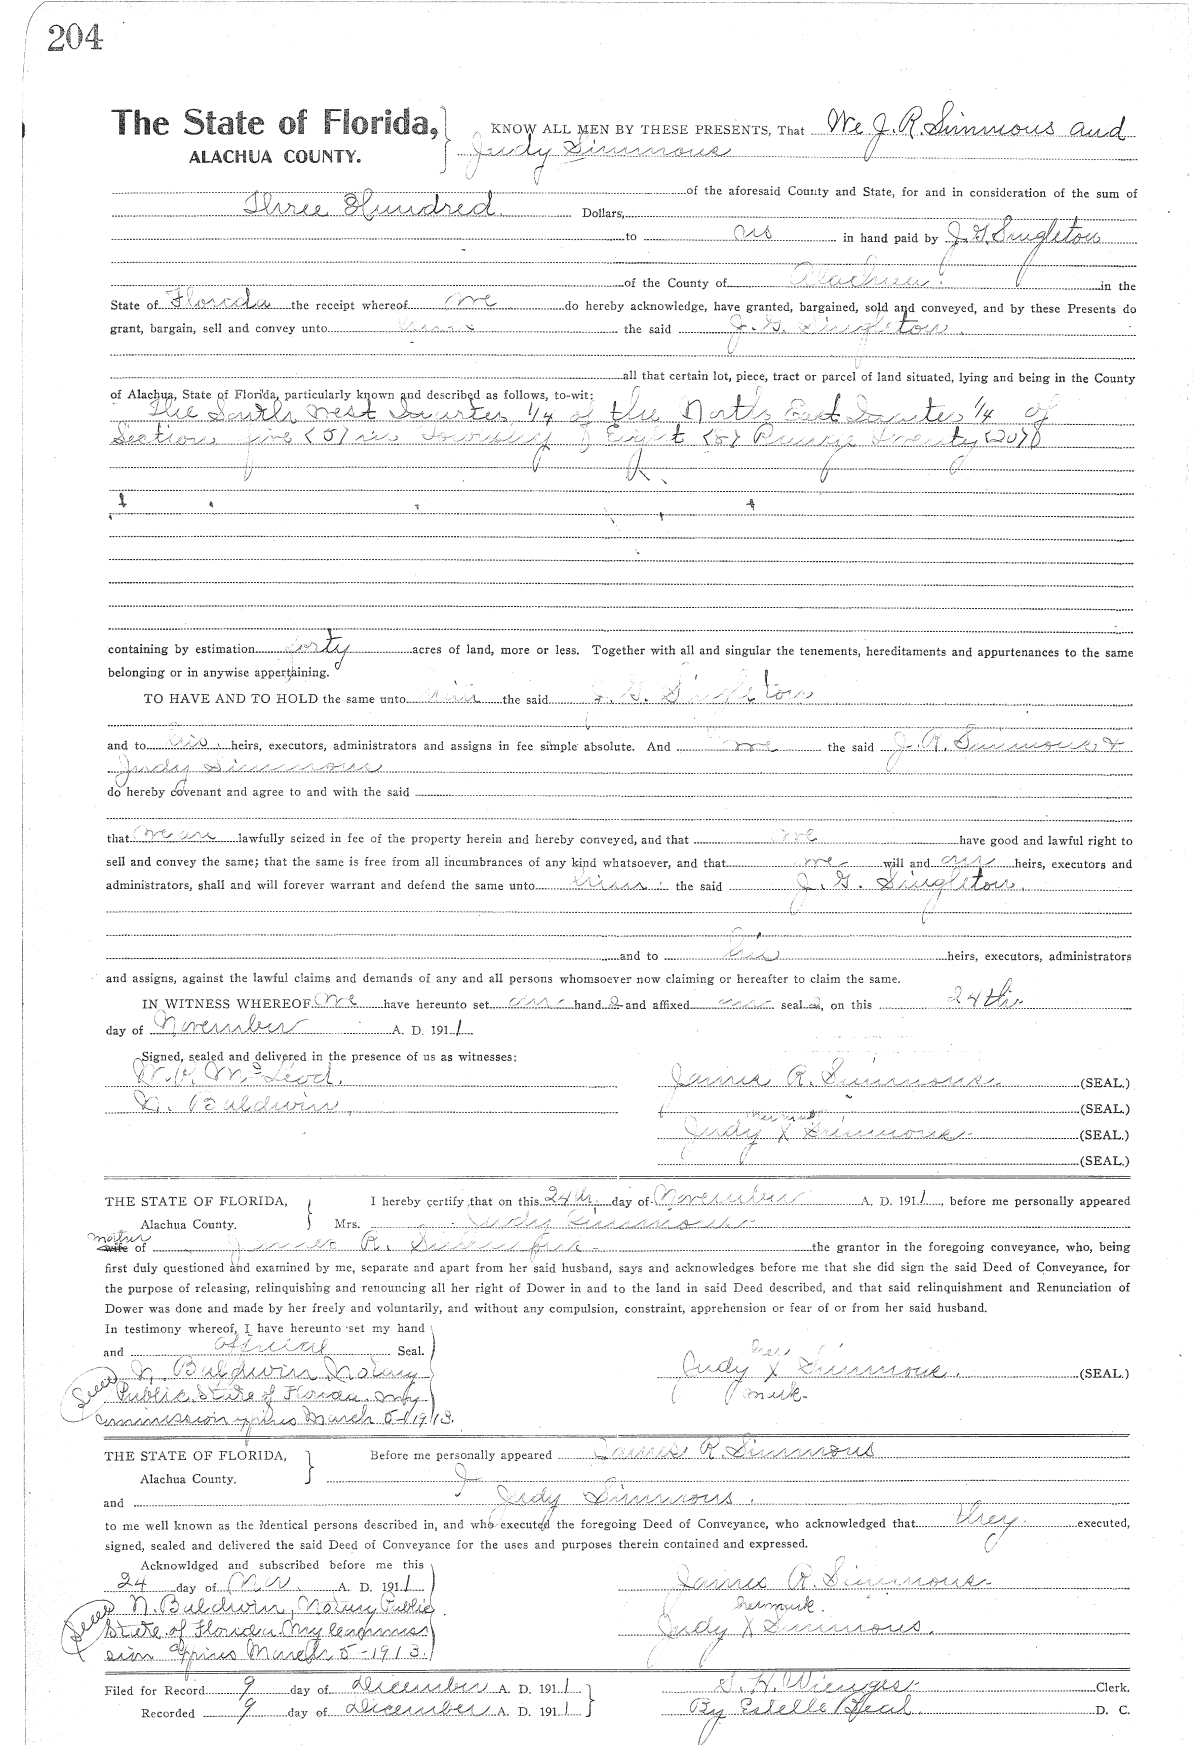 204
The State of Florida,
ALACHUA COUNTY.
KNOW ALL MEN BY THESE PRESENTS, That We J. R. Simmons and
Judy Simmons
of the aforesaid County and State, for and in consideration of the sum of
Three Hundred Dollars,
to us in hand paid by J. G. Singleton
of the County of Alachua in the
State of Florida the receipt whereof we do hereby acknowledge, have granted, bargained, sold and conveyed, and by these Presents do
grant, bargain, sell and convey unto him the said J. G. Singleton.
all that certain lot, piece, tract or parcel of land situated, lying and being in the County
of Alachua, State of Florida, particularly known and described as follows, to-wit:
The South West Quarter 1/4 of the North East Quarter 1/4 of
Section five (5) in Township Eight (8) Range twenty (20)
containing by estimation forty acres of land, more or less. Together with all and singular the tenements, hereditaments and appurtenances to the same
belonging or in anywise appertaining.
TO HAVE AND TO HOLD the same unto him the said J. G. Singleton
and to his heirs, executors, administrators and assigns in fee simple absolute. And we the said J. R. Simmons &
Judy Simmons
do hereby covenant and agree to and with the said
that we are lawfully seized in fee of the property herein and hereby conveyed, and that we have good and lawful right to
sell and convey the same; that the same is free from all incumbrances of any kind whatsoever, and that we will and our heirs, executors and
administrators, shall and will forever warrant and defend the same unto him the said J. G. Singleton.
and to his heirs, executors, administrators
and assigns, against the lawful claims and demands of any and all persons whomsoever now claiming or hereafter to claim the same.
IN WITNESS WHEREOF, We have hereunto set our hand s and affixed our seal s, on this 24th
day of November A. D. 1911
Signed, sealed and delivered in the presence of us as witnesses:
McLeod.
James R. Simmons. (SEAL.)
N. Baldwin.
(SEAL.)
her mark
Judy X Simmons. (SEAL.)
(SEAL.)
THE STATE OF FLORIDA, I hereby certify that on this 24th day of November A. D. 1911, before me personally appeared
Alachua County. Mrs. Judy Simmons
mother
wife of James R. Simmons the grantor in the foregoing conveyance, who, being
first duly questioned and examined by me, separate and apart from her said husband, says and acknowledges before me that she did sign the said Deed of Conveyance, for
the purpose of releasing, relinquishing and renouncing all her right of Dower in and to the land in said Deed described, and that said relinquishment and Renunciation of
Dower was done and made by her freely and voluntarily, and without any compulsion, constraint, apprehension or fear of or from her said husband.
In testimony whereof, I have hereunto set my hand
and official Seal.
her
N. Baldwin, Notary
Judy X Simmons. (SEAL)
mark.
Seal
Public State of Florida. My
commission expires March 5-1913.
THE STATE OF FLORIDA, Before me personally appeared James R. Simmons
Alachua County.
and Judy Simmons.
to me well known as the identical persons described in, and who executed the foregoing Deed of Conveyance, who acknowledged that they executed,
signed, sealed and delivered the said Deed of Conveyance for the uses and purposes therein contained and expressed.
Acknowldged and subscribed before me this
24 day of Nov. A. D. 1911
James R. Simmons
Seal
N. Baldwin, Notary Public
her mark.
State of Florida My Commiss
Judy X Simmons.
sion Expires March 5-1913.
Filed for Record 9 day of December A. D. 1911 S. H. Wienges Clerk.
Recorded 9 day of December A. D. 1911 By Estelle Beal D. C.